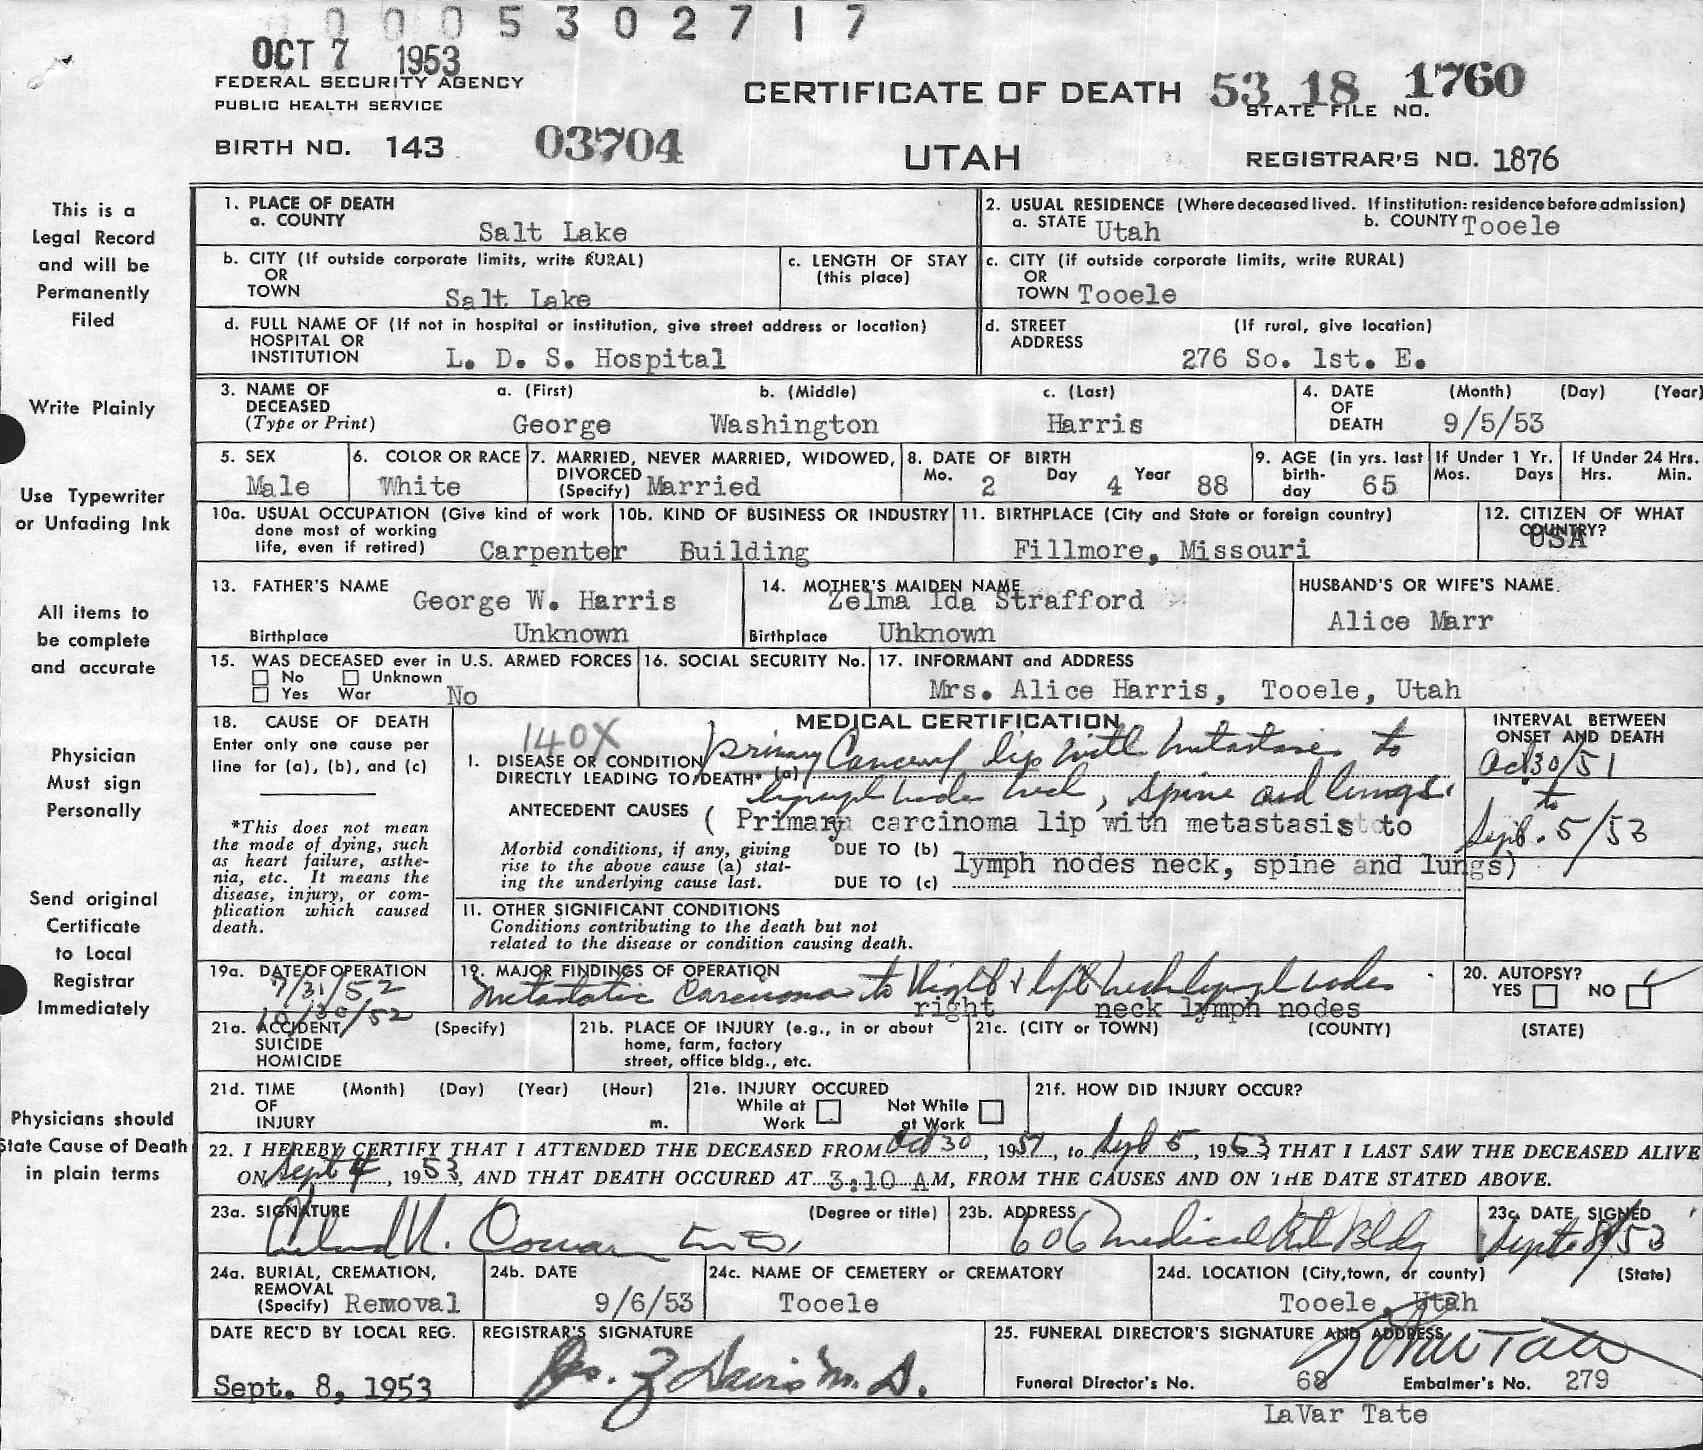 0005302717
OCT 7 1953
FEDERAL SECURITY AGENCY
PUBLIC HEALTH SERVICE
CERTIFICATE OF DEATH 53 18 1760
STATE FILE NO.
BIRTH NO. 143 03704
UTAH
REGISTRAR'S NO. 1876
This is a
Legal Record
and will be
Permanently
Filed
Write Plainly
Use Typewriter
or Unfading Ink
All items to
be complete
and accurate
Physician
Must sign
Personally
Send original
Certificate
to Local
Registrar
Immediately
Physicians should
State Cause of Death
in plain terms
1. PLACE OF DEATH
a. COUNTY
Salt Lake
2. USUAL RESIDENCE (Where deceased lived. If institution: residence before admission)
a. STATE Utah b. COUNTY Tooele
b. CITY (If outside corporate limits, write RURAL)
OR
TOWN Salt Lake
c. LENGTH OF STAY
(this place)
c. CITY (if outside corporate limits, write RURAL)
OR
TOWN Tooele
d. FULL NAME OF (If not in hospital or institution, give street address or location)
HOSPITAL OR
INSTITUTION L. D. S. Hospital
d. STREET (If rural, give location)
ADDRESS
276 So. 1st. E.
3. NAME OF a. (First) b. (Middle) c. (Last)
DECEASED
(Type or Print) George Washington Harris
4. DATE (Month) (Day) (Year)
OF
DEATH 9/5/53
5. SEX
Male
6. COLOR OR RACE
White
7. MARRIED, NEVER MARRIED, WIDOWED,
DIVORCED
(Specify) Married
8. DATE OF BIRTH
Mo. 2 Day 4 Year 88
9. AGE (in yrs. last
birth-
day 65
If Under 1 Yr.
Mos. Days
If Under 24 Hrs.
Hrs. Min.
10a. USUAL OCCUPATION (Give kind of work
done most of working
life, even if retired) Carpenter
10b. KIND OF BUSINESS OR INDUSTRY
Building
11. BIRTHPLACE (City and State or foreign country)
Fillmore, Missouri
12. CITIZEN OF WHAT
COUNTRY?
USA
13. FATHER'S NAME
George W. Harris
Birthplace Unknown
14. MOTHER'S MAIDEN NAME
Zelma Ida Strafford
Birthplace Unknown
HUSBAND'S OR WIFE'S NAME
Alice Marr
15. WAS DECEASED ever in U.S. ARMED FORCES
No Unknown
Yes War No
16. SOCIAL SECURITY No.
17. INFORMANT and ADDRESS
Mrs. Alice Harris, Tooele, Utah
18. CAUSE OF DEATH
Enter only one cause per
line for (a), (b), and (c)
*This does not mean
the mode of dying, such
as heart failure, asthe-
nia, etc. It means the
disease, injury, or com-
plication which caused
death.
MEDICAL CERTIFICATION
140X
I. DISEASE OR CONDITION
DIRECTLY LEADING TO DEATH* (a)
Primary Cancer of lip with metastasis to
lymph nodes neck, spine and lungs.
ANTECEDENT CAUSES (Primary carcinoma lip with metastasis to
Morbid conditions, if any, giving
rise to the above cause (a) stat-
ing the underlying cause last.
DUE TO (b)
lymph nodes neck, spine and lungs)
DUE TO (c)
INTERVAL BETWEEN
ONSET AND DEATH
Oct 30/51
to
Sept. 5/53
11. OTHER SIGNIFICANT CONDITIONS
Conditions contributing to the death but not
related to the disease or condition causing death.
19a. DATE OF OPERATION
7/31/52
10/30/52
19. MAJOR FINDINGS OF OPERATION
Metastatic Carcinoma to Right & left neck lymph nodes
right neck lymph nodes
20. AUTOPSY?
YES NO ✓
21a. ACCIDENT (Specify)
SUICIDE
HOMICIDE
21b. PLACE OF INJURY (e.g., in or about
home, farm, factory
street, office bldg., etc.
21c. (CITY or TOWN) (COUNTY) (STATE)
21d. TIME (Month) (Day) (Year) (Hour)
OF
INJURY m.
21e. INJURY OCCURED
While at Work
Not While at Work
21f. HOW DID INJURY OCCUR?
22. I HEREBY CERTIFY THAT I ATTENDED THE DECEASED FROM Oct 30, 1951, to Sept 5, 1953 THAT I LAST SAW THE DECEASED ALIVE
ON Sept 4, 1953, AND THAT DEATH OCCURED AT 3:10 AM, FROM THE CAUSES AND ON THE DATE STATED ABOVE.
23a. SIGNATURE (Degree or title)
23b. ADDRESS
606 Medical Arts Bldg
23c. DATE SIGNED
Sept 8/53
24a. BURIAL, CREMATION,
REMOVAL
(Specify) Removal
24b. DATE
9/6/53
24c. NAME OF CEMETERY or CREMATORY
Tooele
24d. LOCATION (City, town, or county) (State)
Tooele, Utah
DATE REC'D BY LOCAL REG.
Sept. 8, 1953
REGISTRAR'S SIGNATURE
Davis M. D.
25. FUNERAL DIRECTOR'S SIGNATURE AND ADDRESS
LaVar Tate
Funeral Director's No. 68 Embalmer's No. 279
LaVar Tate